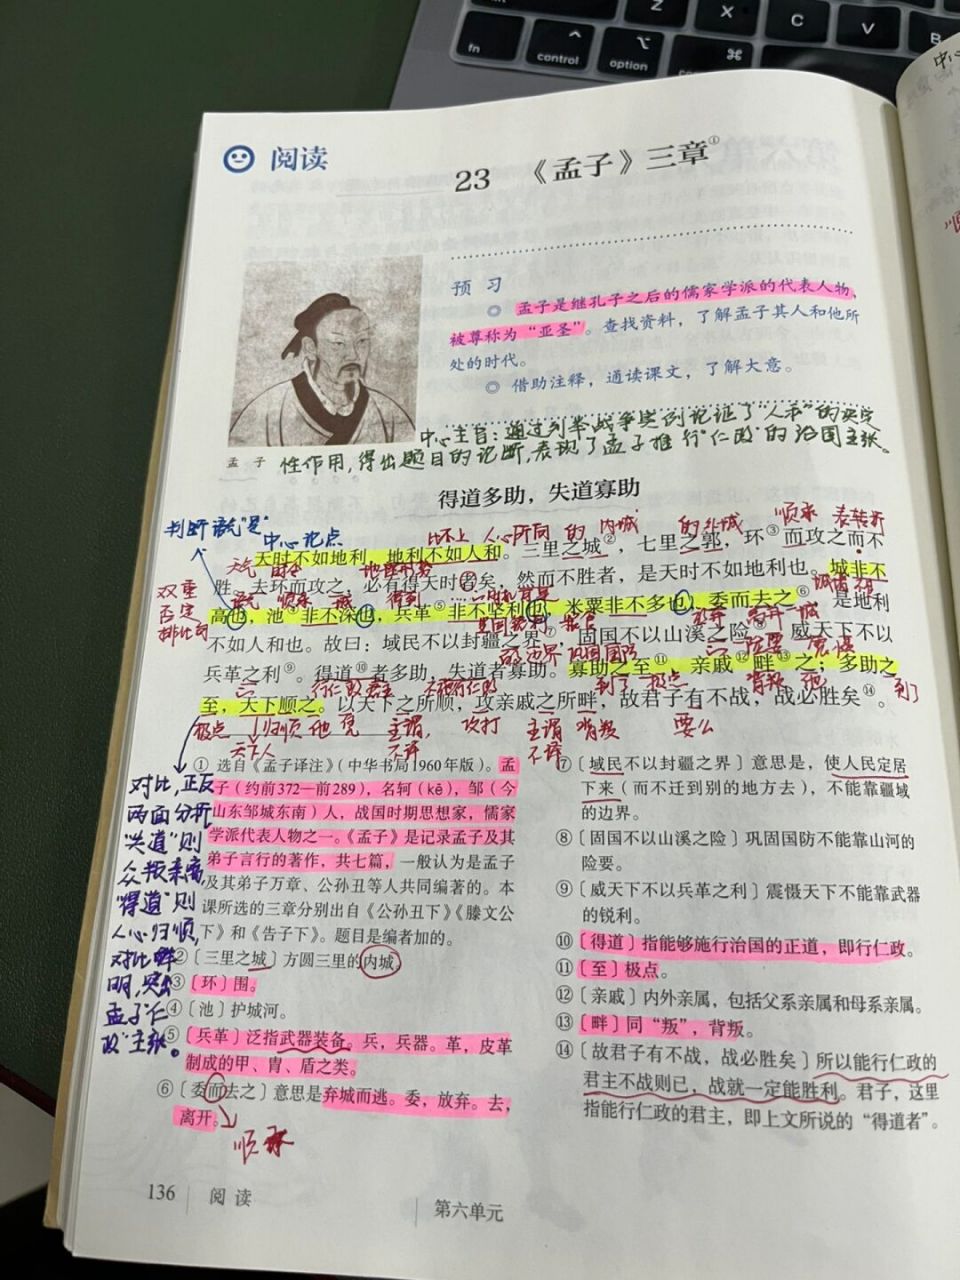 Z X C V B
fn control option ⌘
⌃ ⌥
阅读
23 《孟子》三章①
预 习
◎ 孟子是继孔子之后的儒家学派的代表人物，
被尊称为“亚圣”。查找资料，了解孟子其人和他所
处的时代。
◎ 借助注释，通读课文，了解大意。
孟 子
中心主旨：通过列举战争实例论证了“人和”的决定
性作用，得出题目的论断，表现了孟子推行“仁政”的治国主张。
得道多助，失道寡助
判断语气“是”
中心论点
比不上 人心所向 的 内城 的 外城 顺承 表转折
天时不如地利，地利不如人和。三里之城②，七里之郭，环③而攻之而不
天气 时令 地理形势
胜。夫环而攻之，必有得天时者矣，然而不胜者，是天时不如地利也。城非不
双重
否定
排比句
高也，池④非不深也，兵革⑤非不坚利也，米粟非不多也，委而去之⑥，是地利
不如人和也。故曰：域民不以封疆之界⑦，固国不以山溪之险⑧，威天下不以
的 边界 巩固国防
兵革之利⑨。得道⑩者多助，失道者寡助。寡助之至⑪，亲戚⑫畔⑬之；多助之
行仁政君主 不施行仁政 到了 极点 背叛 他
至，天下顺之。以天下之所顺，攻亲戚之所畔，故君子有不战，战必胜矣⑭。
到了
极点 归顺 他 凭 主谓，攻打 主谓 背叛 要么
天下人 不译 不译
对比，正反
两面分析
“失道”则
众叛亲离，
“得道”则
人心归顺，
对比鲜
明，突出
孟子“仁
政”主张。
① 选自《孟子译注》（中华书局1960年版）。孟
子（约前372—前289），名轲（kē），邹（今
山东邹城东南）人，战国时期思想家，儒家
学派代表人物之一。《孟子》是记录孟子及其
弟子言行的著作，共七篇，一般认为是孟子
及其弟子万章、公孙丑等人共同编著的。本
课所选的三章分别出自《公孙丑下》《滕文公
下》和《告子下》。题目是编者加的。
②〔三里之城〕方圆三里的内城。
③〔环〕围。
④〔池〕护城河。
⑤〔兵革〕泛指武器装备。兵，兵器。革，皮革
制成的甲、胄、盾之类。
⑥〔委而去之〕意思是弃城而逃。委，放弃。去，
离开。
顺承
⑦〔域民不以封疆之界〕意思是，使人民定居
下来（而不迁到别的地方去），不能靠疆域
的边界。
⑧〔固国不以山溪之险〕巩固国防不能靠山河的
险要。
⑨〔威天下不以兵革之利〕震慑天下不能靠武器
的锐利。
⑩〔得道〕指能够施行治国的正道，即行仁政。
⑪〔至〕极点。
⑫〔亲戚〕内外亲属，包括父系亲属和母系亲属。
⑬〔畔〕同“叛”，背叛。
⑭〔故君子有不战，战必胜矣〕所以能行仁政的
君主不战则已，战就一定能胜利。君子，这里
指能行仁政的君主，即上文所说的“得道者”。
136 阅 读 第六单元